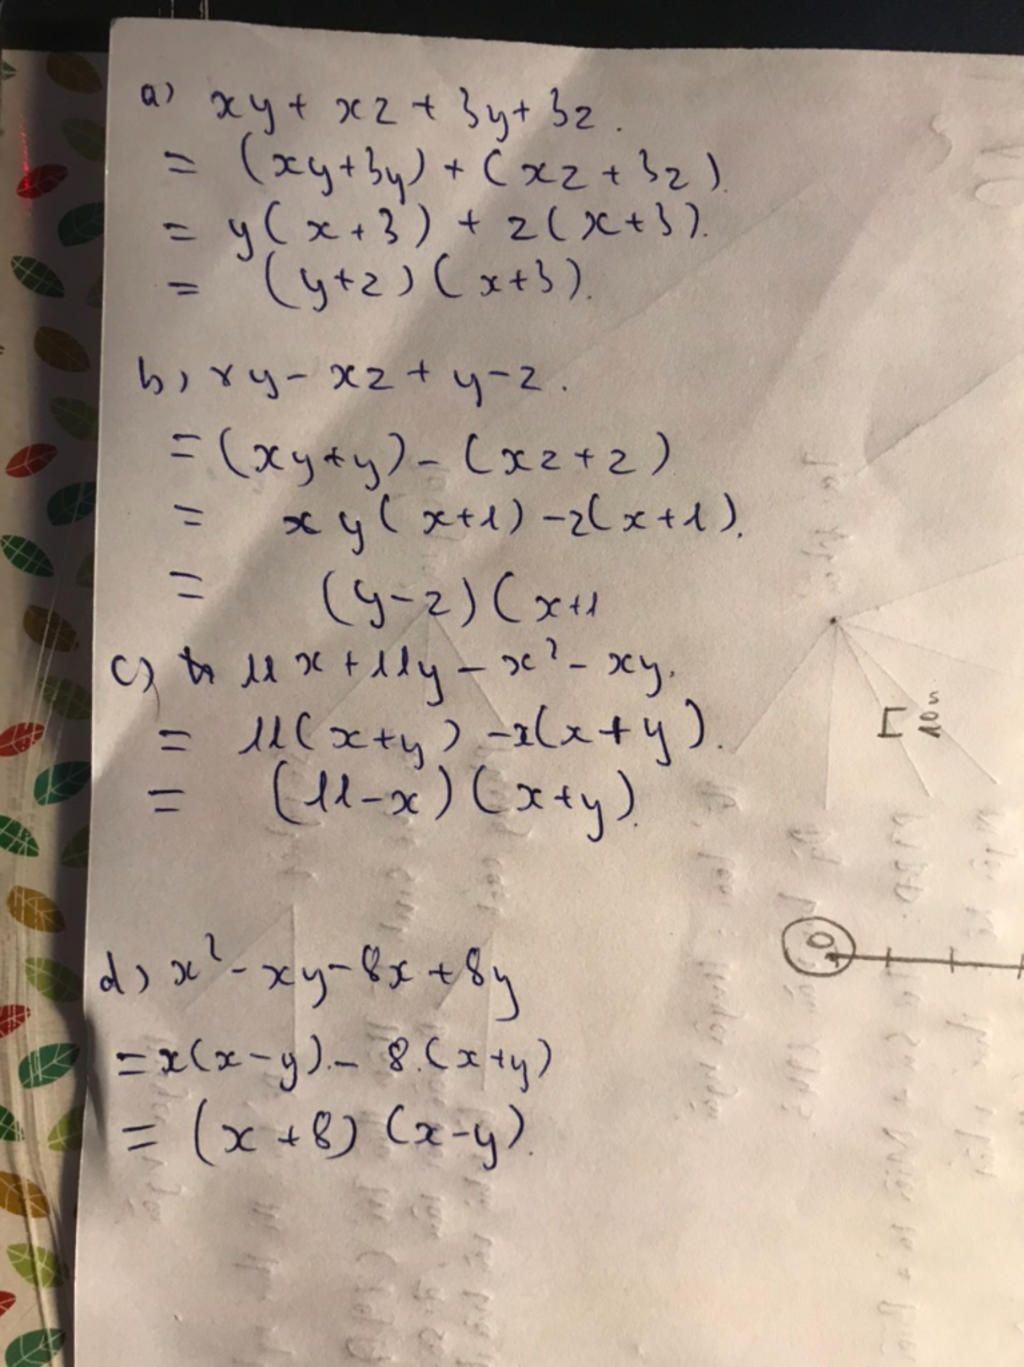 a) xy + xz + 3y + 3z.
= (xy + 3y) + (xz + 3z).
= y(x + 3) + z(x + 3).
= (y + z)(x + 3).
b) xy - xz + y - z.
= (xy + y) - (xz + z)
= xy(x + 1) - z(x + 1).
= (y - z)(x + 1
c) 11x + 11y - x² - xy.
= 11(x + y) - x(x + y).
= (11 - x)(x + y).
d) x² - xy - 8x + 8y
= x(x - y) - 8.(x + y)
= (x + 8)(x - y).